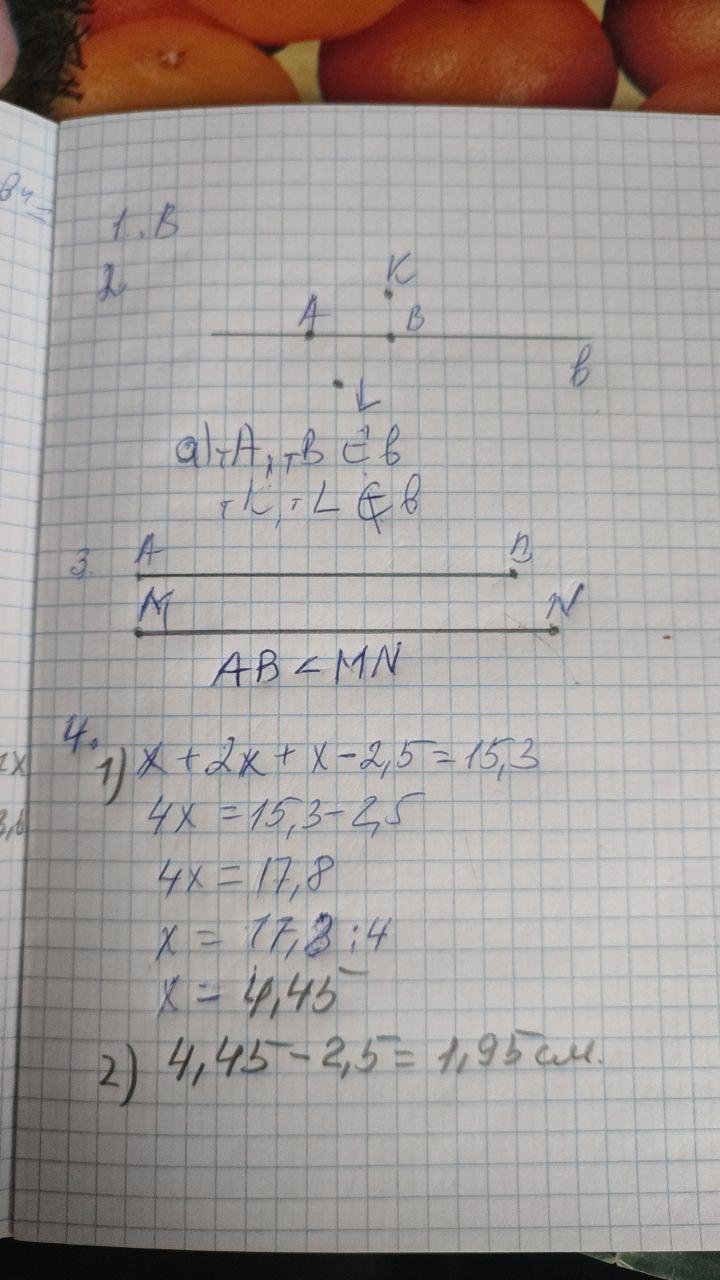 в ч =
1. В
2
К
А В
в
L
а) т А, т В ∈ в
т К, т L ∉ в
3. А В
М N
AB < MN
4.
1) x + 2x + x - 2,5 = 15,3
4x = 15,3 - 2,5
4x = 17,8
x = 17,8 : 4
x = 4,45
2) 4,45 - 2,5 = 1,95 см.